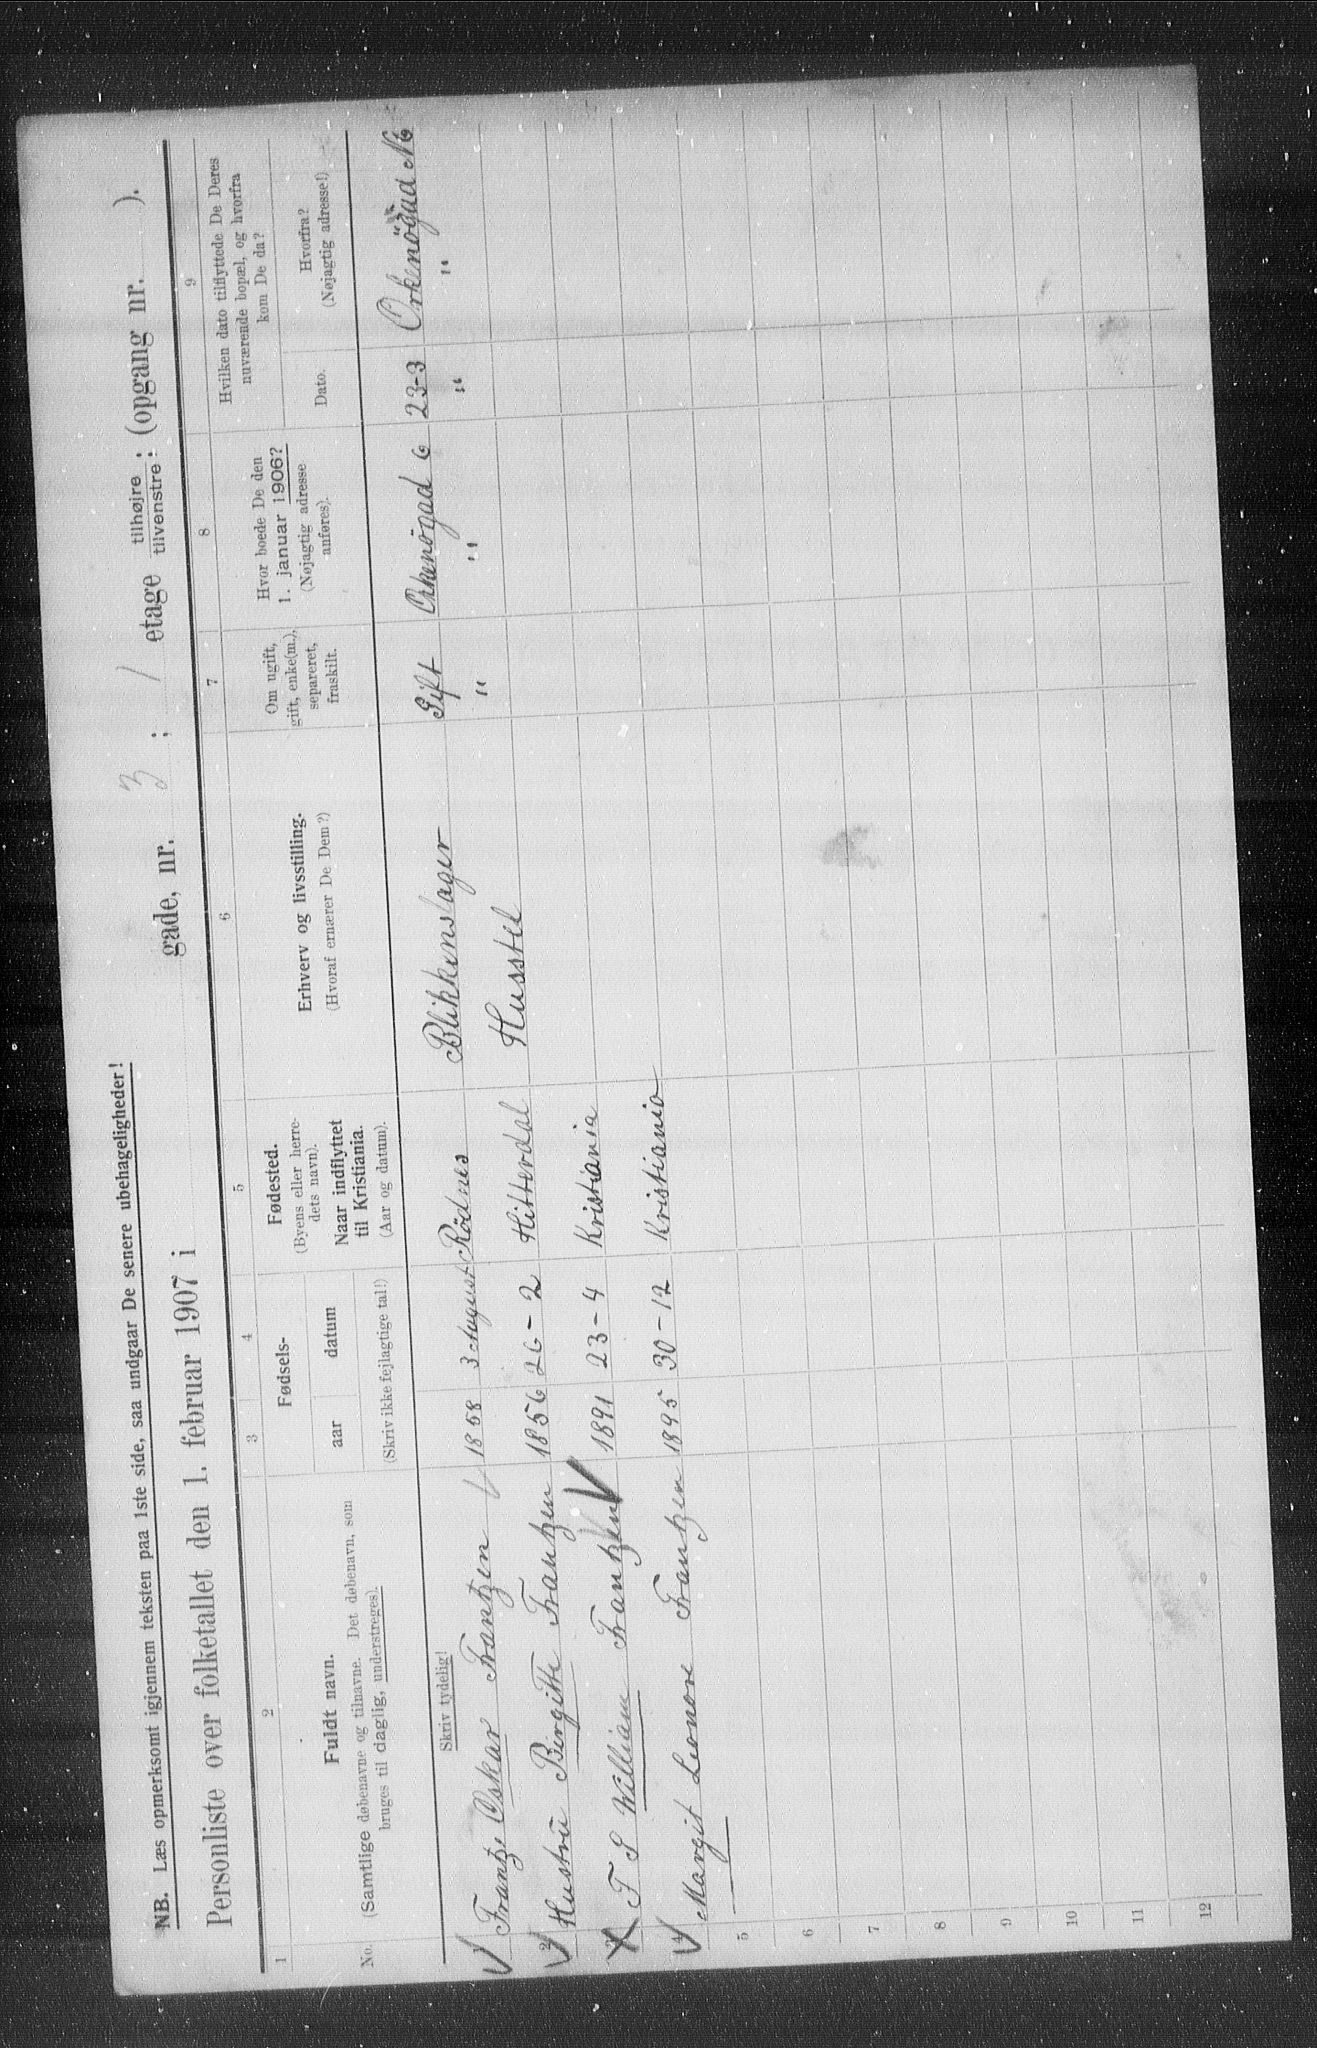 NB. Læs opmerksomt igjennem teksten paa 1ste side, saa undgaar De senere ubehageligheder!
Personliste over folketallet den 1. februar 1907 i gade, nr. 3 ; 1 etage tilhøjre tilvenstre : (opgang nr. ).
1 2 3 4 5 6 7 8 9
No.
Fuldt navn.
(Samtlige døbenavne og tilnavne. Det døbenavn, som
bruges til daglig, understreges).
Fødsels-
aar datum
(Skriv ikke fejlagtige tal!)
Fødested.
(Byens eller herre-
dets navn).
Naar indflyttet
til Kristiania.
(Aar og datum).
Erhverv og livsstilling.
(Hvoraf ernærer De Dem?)
Om ugift,
gift, enke(m.),
separeret,
fraskilt.
Hvor boede De den
1. januar 1906?
(Nøjagtig adresse
anføres).
Hvilken dato tilflyttede De Deres
nuværende bopæl, og hvorfra
kom De da?
Dato.
Hvorfra?
(Nøjagtig adresse!)
Skriv tydelig!
Frantz Oskar Frantzen 1858 3 August Rödnes Blikkenslager Gift Orkenögad 6 23-3 Orkenögad No 6
2 Hustru Birgitte Frantzen 1856 26-2 Hitterdal Husstel " " " "
3 F S William Frantzen 1891 23-4 Kristiania
4 Margit Leonore Frantzen 1895 30-12 Kristiania
5
6
7
8
9
10
11
12